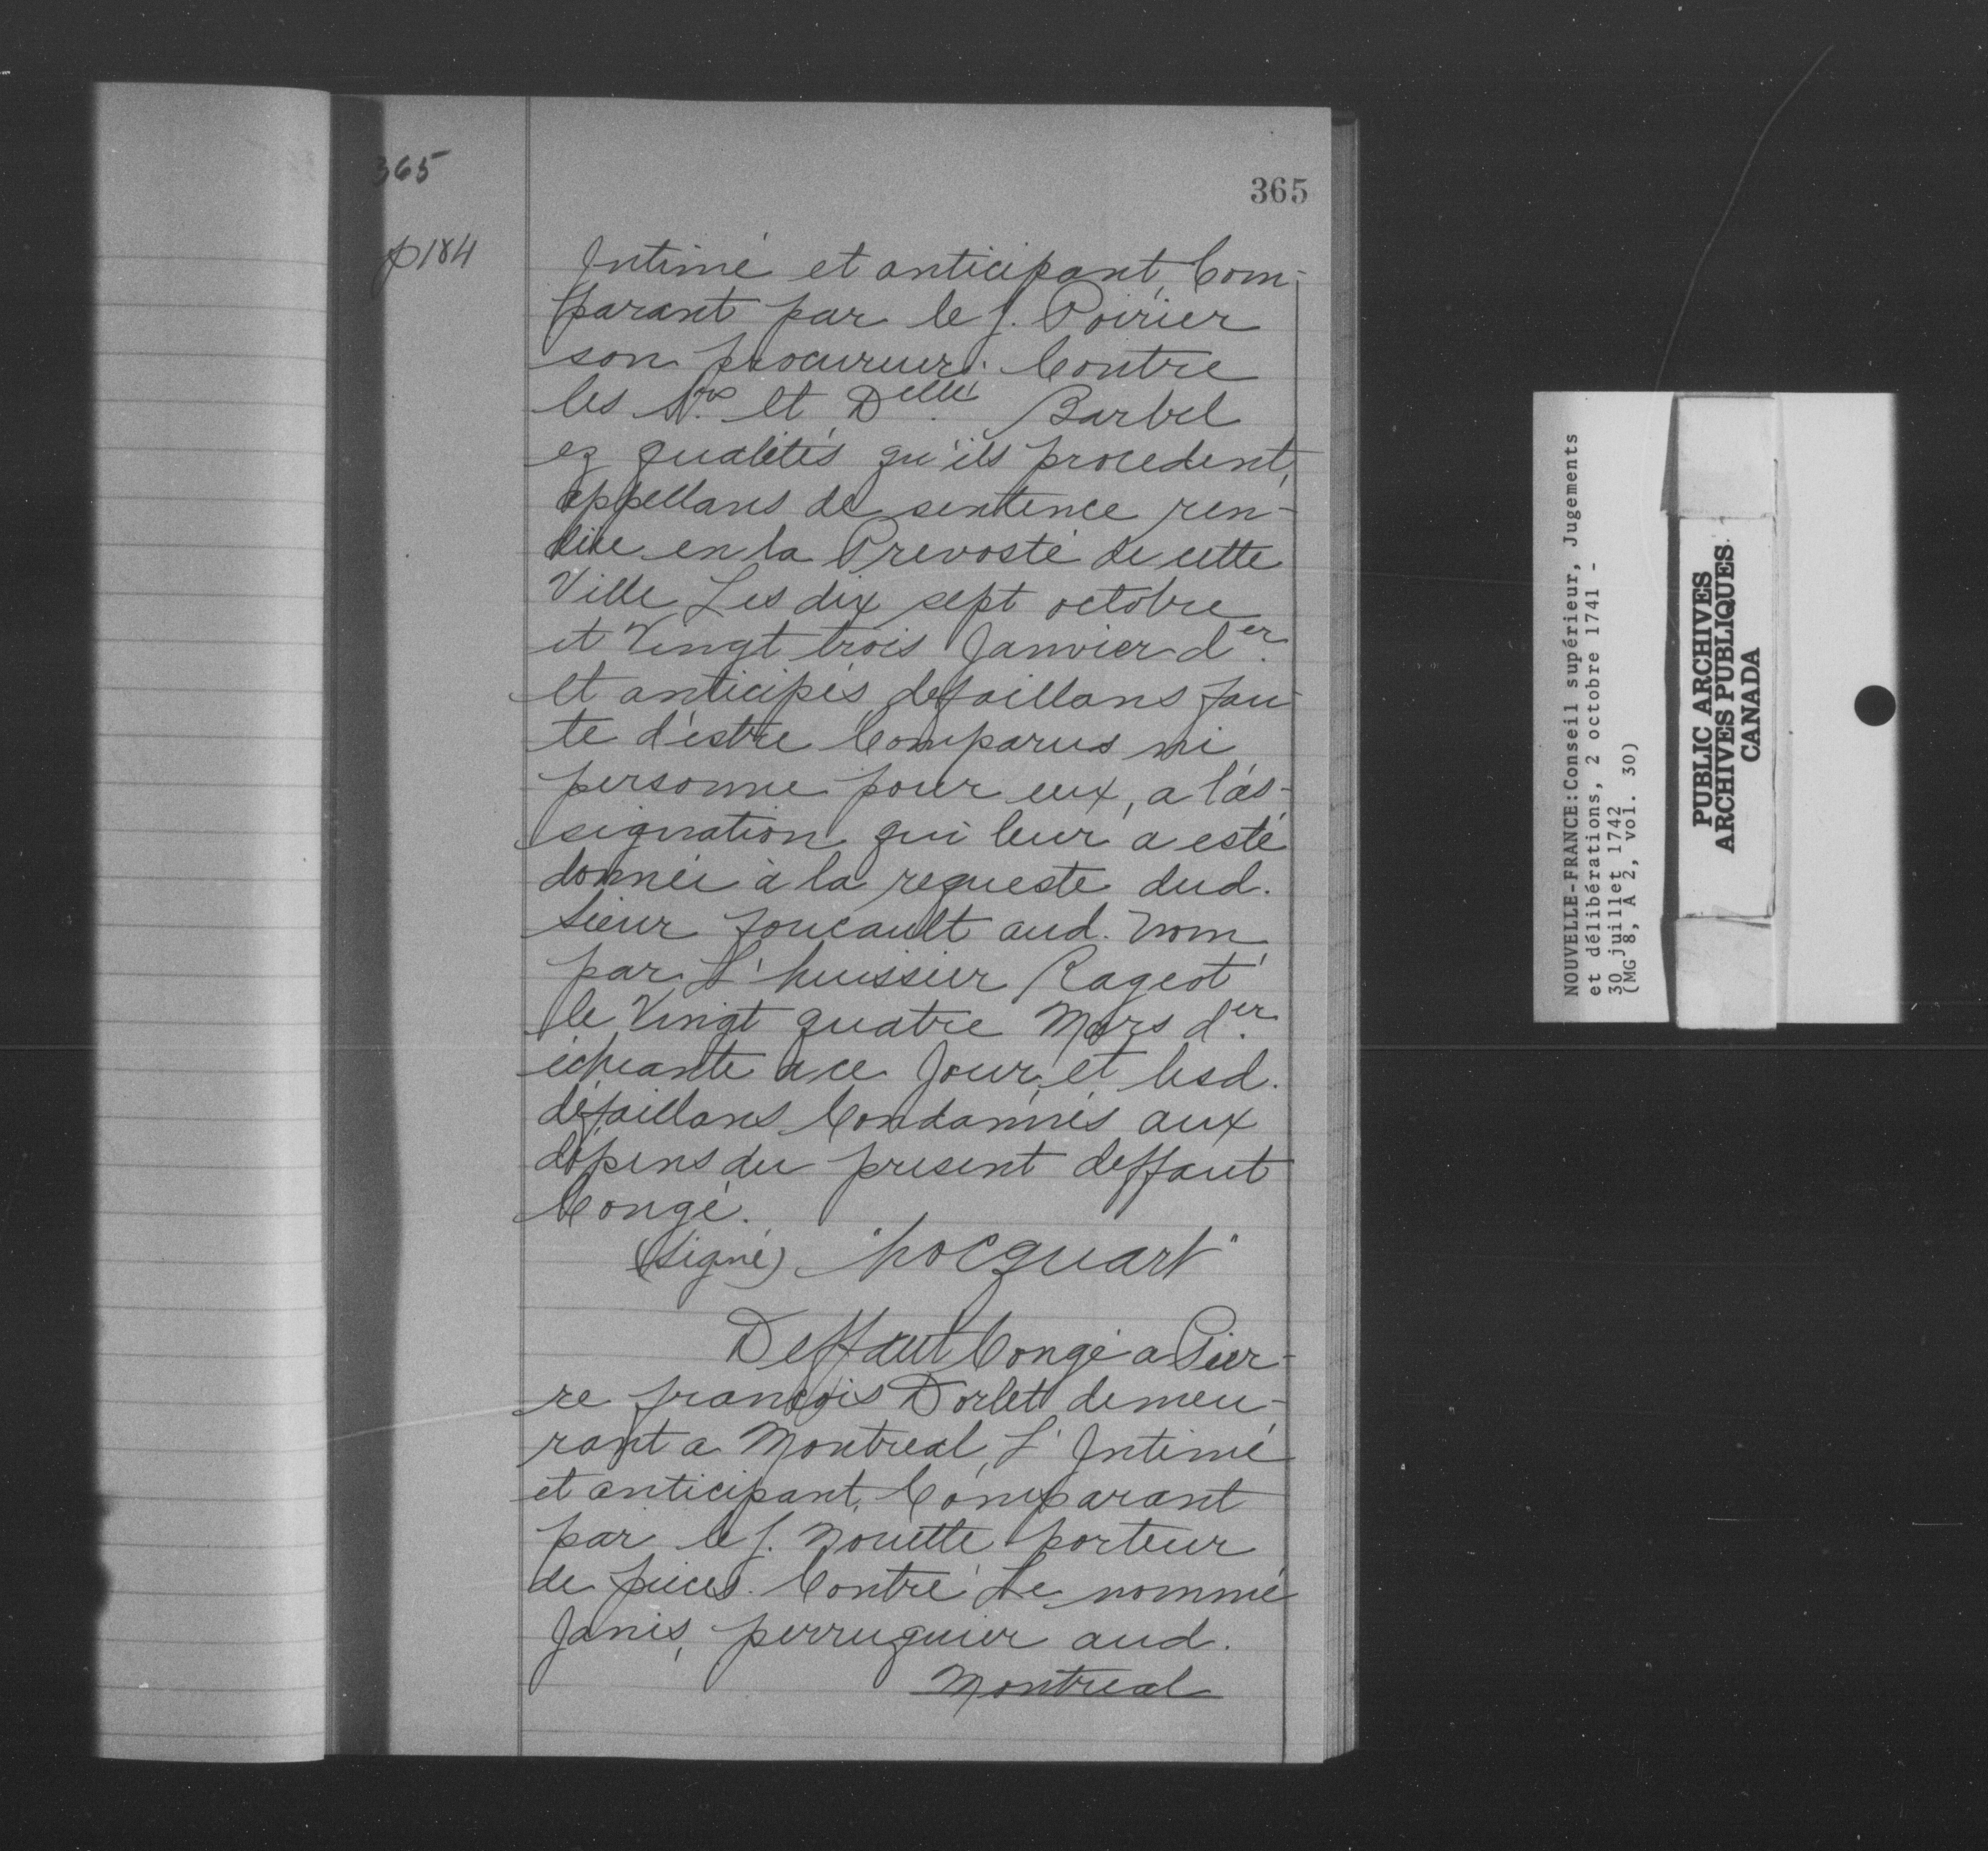 365
365
p 184
Intimé et anticipant, Com-
parant par le S. Poirier
son procureur. Contre
les Srs et Delle Barbel
ez qualités qu'ils procedent,
appellans de sentence ren-
due en la Prevosté de cette
Ville Les dix sept octobre
et Vingt trois Janvier der.
et anticipés, defaillans fau-
te d'éstre Comparus ni
personne pour eux, a l'as-
signation qui leur a esté
donnée à la requeste dud.
Sieur foucault aud. Nom
par L'huissier Rageot
le Vingt quatre Mars der.
écheante a ce Jour, et lesd.
défaillans Condamnés aux
dépens du present deffaut
Congé.
(Signé) "hocquart"
Deffaut Congé a Pier-
re françois Dorlet demeu-
rant a Montreal, L'Intimé
et anticipant, Comparant
par le S. Nouette porteur
de pieces. Contre Le nommé
Janis, perruquier aud.
Montreal
NOUVELLE-FRANCE:Conseil supérieur, Jugements
et délibérations, 2 octobre 1741 -
30 juillet 1742
(MG 8, A 2, vol. 30)
PUBLIC ARCHIVES
ARCHIVES PUBLIQUES
CANADA